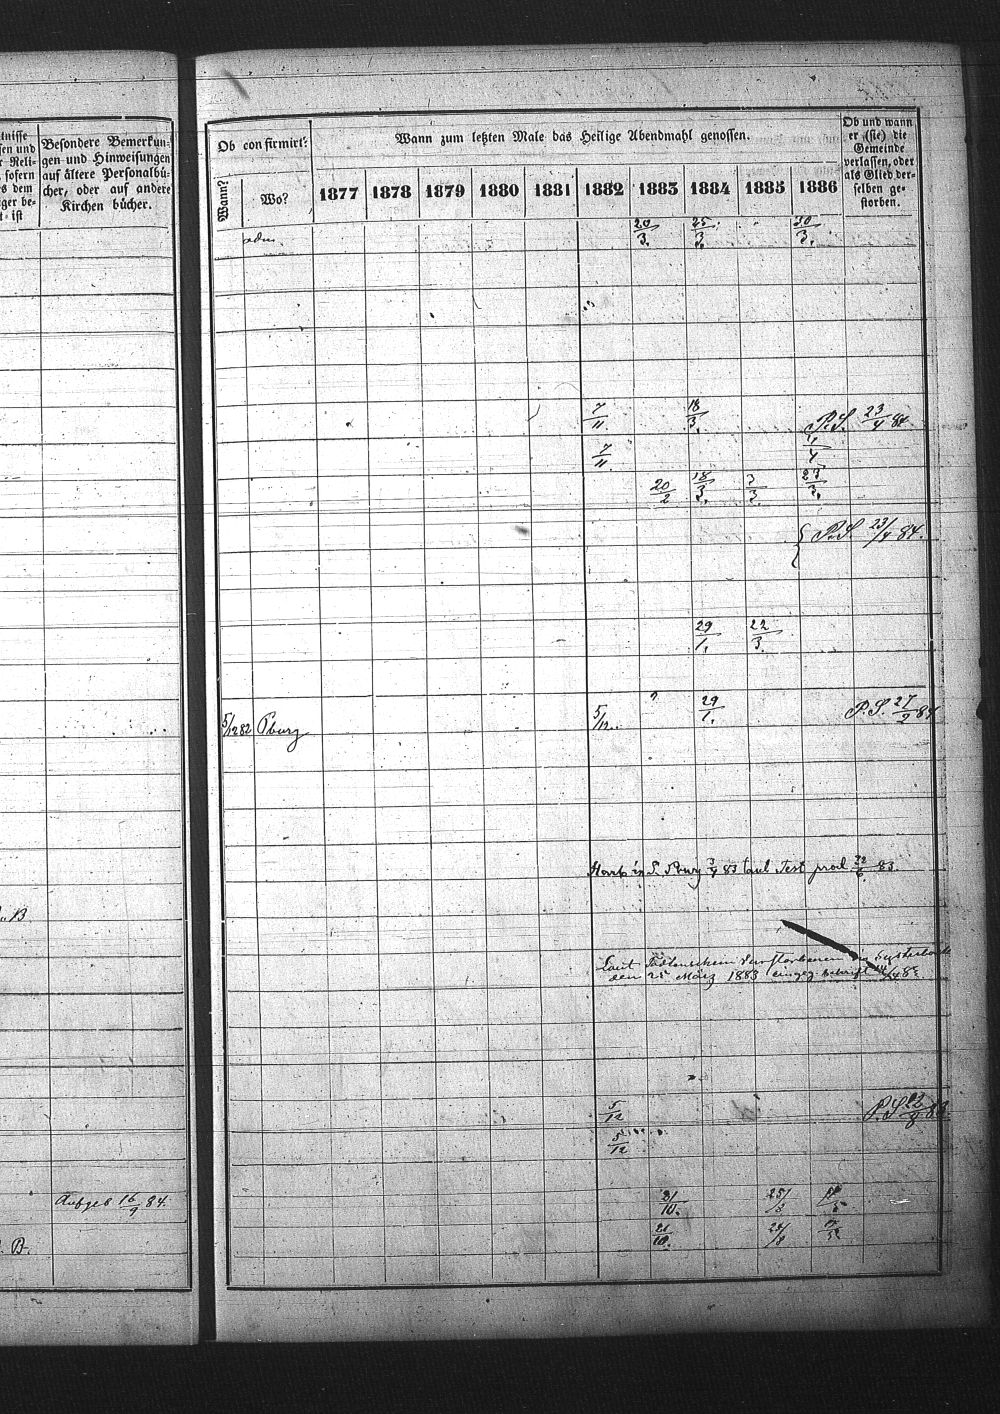 tnisse
sen und
r Reli-
sofern
s dem
ger be-
t ist
Besondere Bemerkun-
gen und Hinweisungen
auf ältere Personalbü-
cher, oder auf andere
Kirchen bücher.
Ob confirmirt?
Wann?
Wo?
Wann zum letzten Male das Heilige Abendmahl genossen.
1877 1878 1879 1880 1881 1882 1883 1884 1885 1886
Ob und wann
er (sie) die
Gemeinde
verlassen, oder
als Glied der-
selben ge-
storben.
adm. 20/3. 25/3. 30/3.
7/11 18/3. P.S. 23/4 84.
7/11 4/4
20/2 18/3. 3/3. 23/3.
P.S. 23/4 84.
29/1. 22/3.
5/12 82 Pburg 5/12. 29/1. P.S. 27/2 84
in S. Pburg 3/4 83 laut Test prod 22/6 83.
B.
Laut Todtenschein verstorben in
den 25 März 1883
5/12 P.S. 83
5/12
Aufgeb 16/9 84. 21/10. 25/3
B. 21/10.